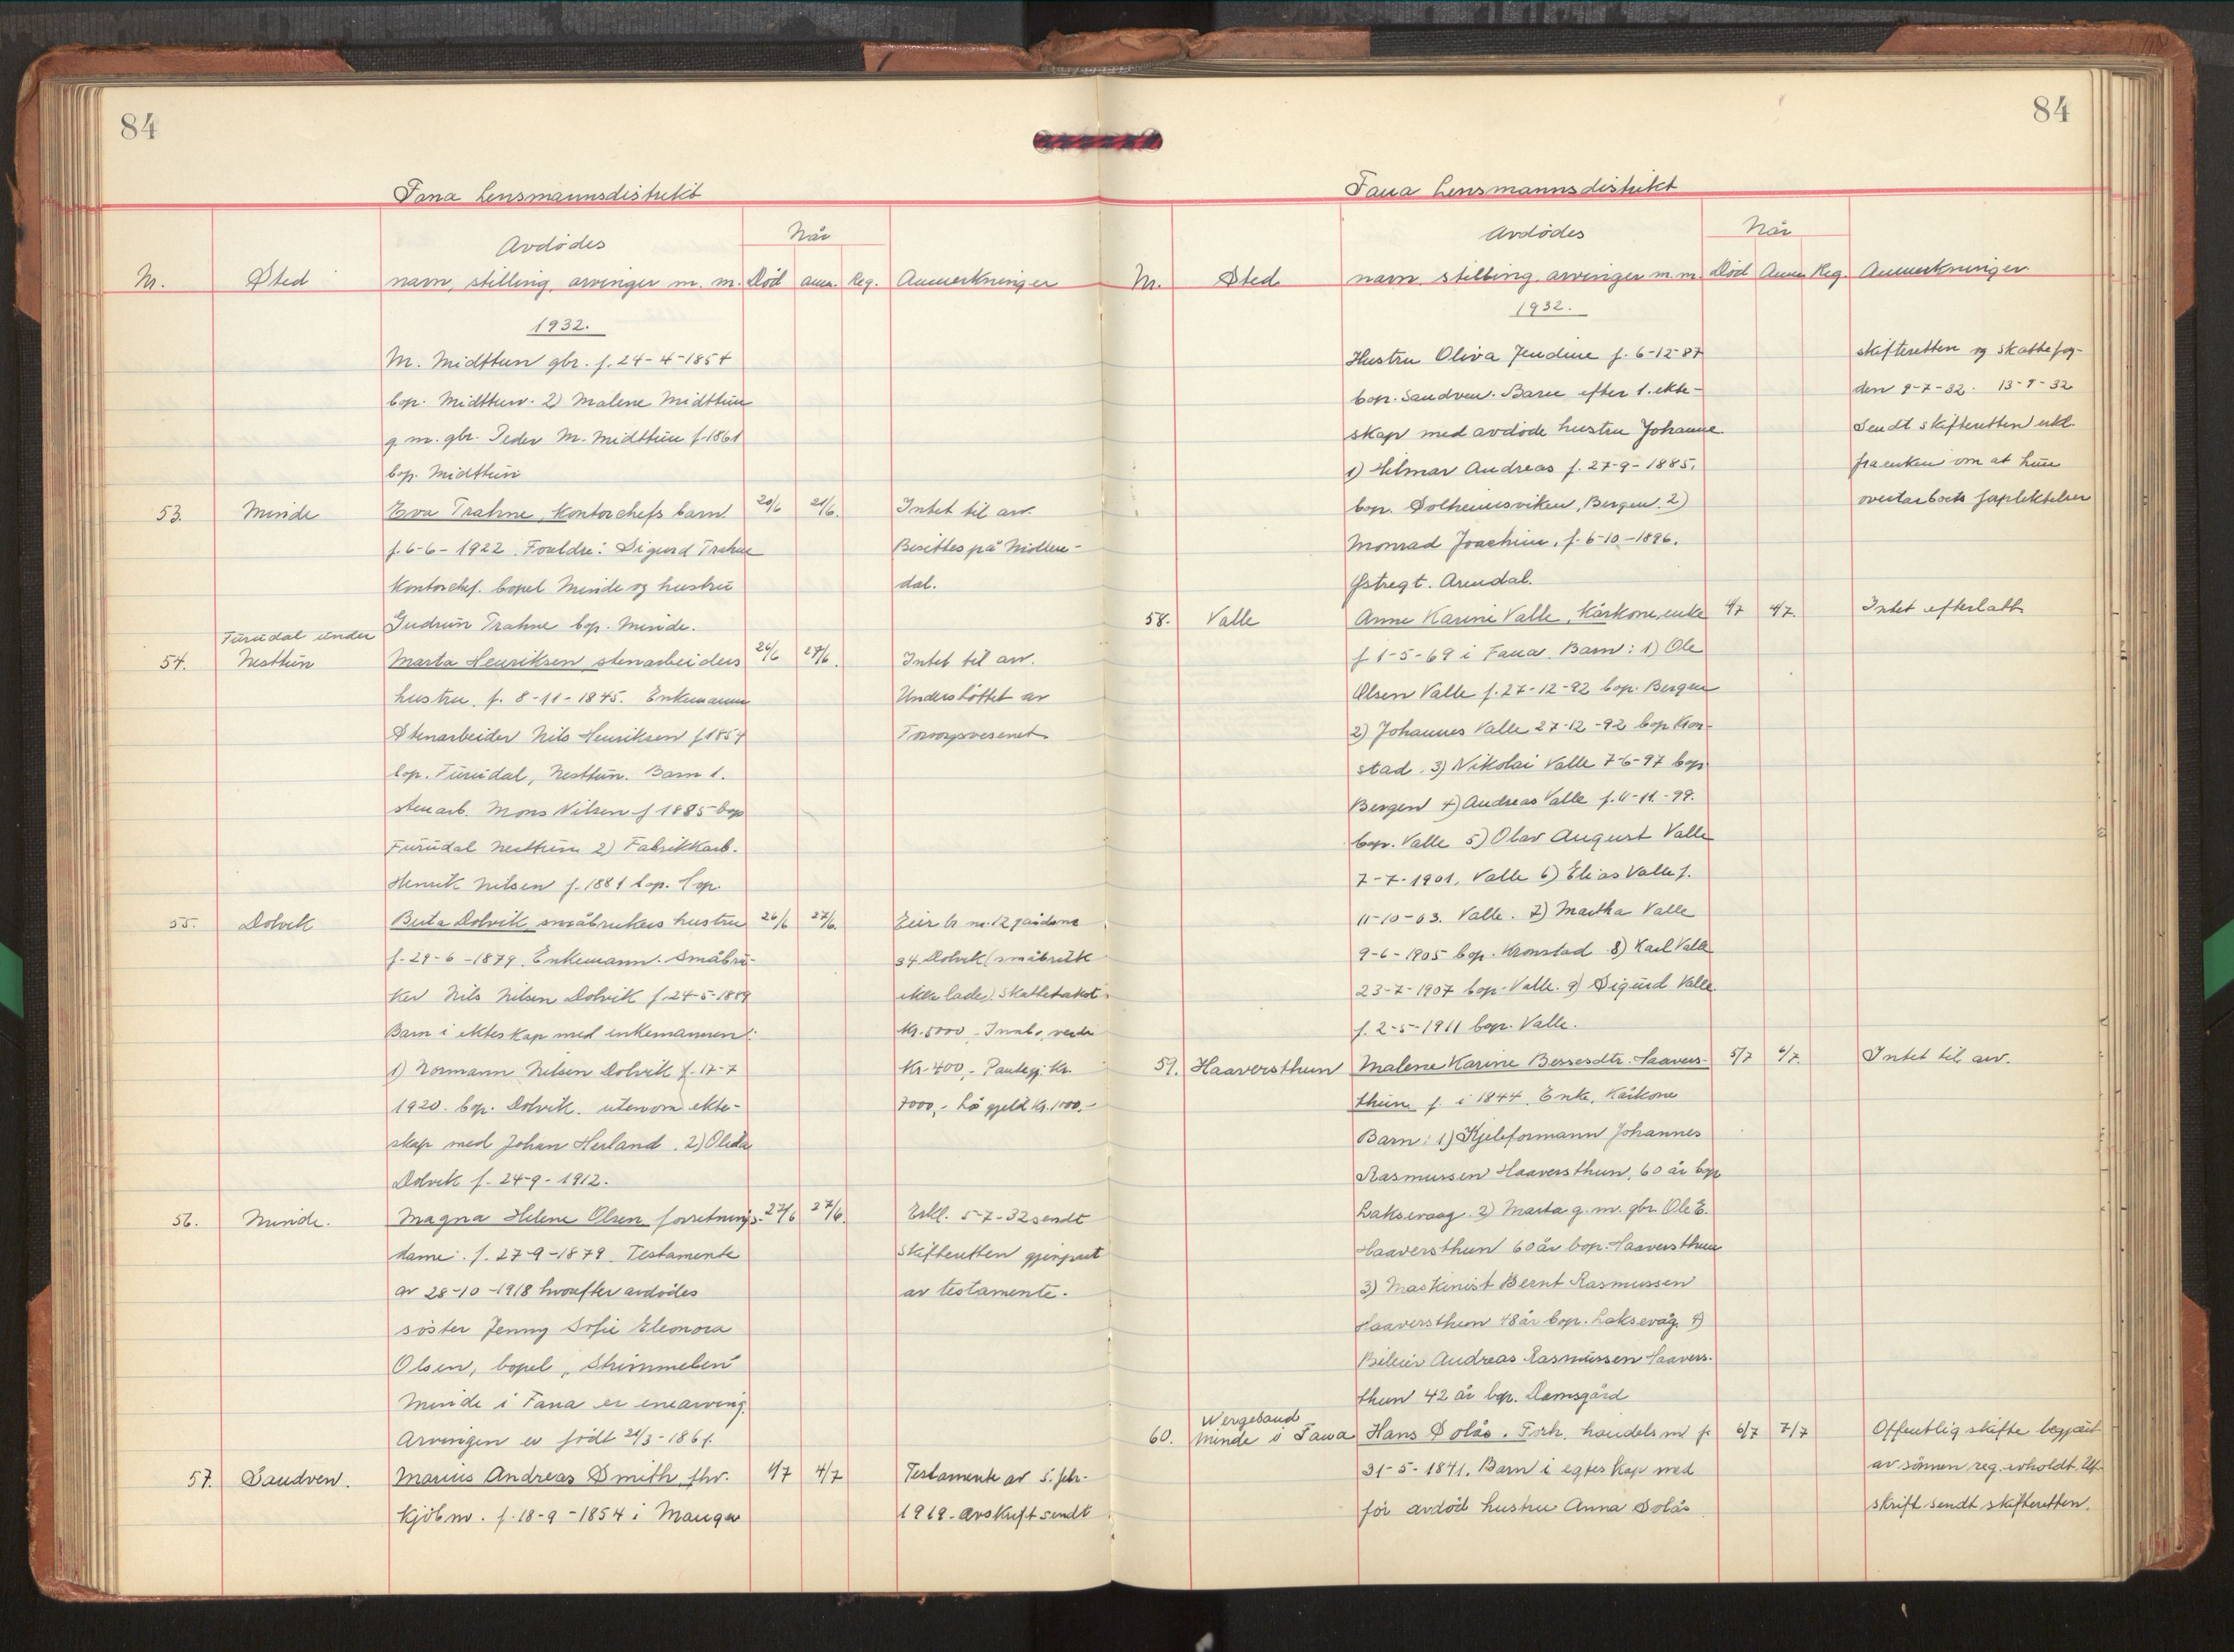 84
Fana Lensmannsdistrikt
Avdødes
Når
Nr. Sted navn, stilling, arvinger m. m. Död anm. Reg. Anmerkninger
1932.
M. Midttun gbr. f. 24-4-1854
bop. Midttun. 2) Malene Midttun
g. m. gbr. Peder M. Midttun f. 1861
bop. Midttun
53. Minde Eva Trahne, kontorchefs barn 20/6 21/6. Intet til arv.
f. 6-6-1922. Foreldre: Sigurd Trahne Besittes på Möllen-
kontorchef. bopel Minde og hustru dal.
Gudrun Trahne bop. Minde.
Furudal under
54. Nesttun Marta Henriksen stenarbeiders 26/6 27/6. Intet til arv.
hustru. f. 8-11-1845. Enkemann Understöttet av
Stenarbeider Nils Henriksen f 1854 Forsorgsvesenet
bop. Furudal, Nesttun. Barn 1.
stenarb. Mons Nilsen f 1885 bop
Furudal Nesttun 2) Fabrikkarb.
Henrik Nilsen f. 1881 bop. Sop.
55. Dolvik Berta Dolvik småbrukers hustru 26/6 27/6. Eier b nr. 12 gårdsnr
f. 29-6-1879. Enkemann. Småbru- 34 Dolvik (småbruk
ker Nils Nilsen Dolvik f. 24-5-1889 ikke lade). Skattetakst
Barn i ekteskap med enkemannen: Kr. 5000,- Innbo, verdi
1) Normann Nilsen Dolvik f. 17-7 Kr. 400,- Pantegj. Kr.
1920. bop. Dolvik. utenom ekte- 7000,- Lös gjeld Kr. 1000,-
skap med Johan Herland. 2) Olida
Dolvik f. 24-9-1912.
56. Minde. Magna Helene Olsen forretnings- 27/6 27/6. Erkl. 5-7-32 sendt
dame. f. 27-9-1879. Testamente Skifteretten gjenpart
av 28-10-1918 hvorefter avdödes av testamente.
söster Jenny Sofie Eleonora
Olsen, bopel "Skimmeben"
Minde i Fana er enearving.
Arvingen er född 21/3-1861.
57. Sandven. Marius Andreas Smith fhv. 1/7 4/7 Testamente av 5. febr.
kjöbm. f. 18-9-1854 i Manger 1919. avskrift sendt
84
Fana Lensmannsdistrikt
Avdödes
Når
Nr. Sted navn stilling arvinger m. m. Död Anm Reg. Anmerkninger
1932.
Hustru Oliva Jendine f. 6-12-87 skifteretten og skattefog-
bop. Sandven. Barn efter 1. ekte- den 9-7-32. 13-9-32
skap med avdöde hustru Johanne. Sendt skifteretten erkl.
1) Hilmar Andreas f. 27-9-1885. fra enken om at hun
bop. Solheimsviken, Bergen. 2) overtar boets forpliktelser
Monrad Joachim, f. 6-10-1896.
Östregt. Arendal.
58. Valle Anne Karine Valle, kårkone, enke 4/7 4/7. Intet efterlatt
f 1-5-69 i Fana. Barn: 1) Ole
Olsen Valle f. 27-12-92 bop. Bergen
2) Johannes Valle 27-12-92 bop Kron-
stad. 3) Nikolai Valle 7-6-97 bop
Bergen 4) Andreas Valle f. 11-11-99.
bop. Valle 5) Olav August Valle
7-7-1901. Valle 6) Elias Valle f.
11-10-03. Valle. 7) Martha Valle
9-6-1905 bop. Kronstad 8) Karl Valle
23-7-1907 bop. Valle. 9) Sigurd Valle
f. 2-5-1911 bop. Valle.
59. Haaversthun Malene Karine Bersesdtr. Haavers- 5/7 6/7. Intet til arv.
thun f. i 1844. Enke, Kårkone
Barn: 1) Kjeleformann Johannes
Rasmussen Haaversthun, 60 år bop
Laksevaag. 2) Marta g. m. gbr. Ole E.
Haaversthun 60 år bop. Haaversthun
3) Maskinist Bernt Rasmussen
Haaversthun 48 år bop. Laksevåg. 4)
Bileier Andreas Rasmussen Haavers-
thun 42 år bop. Damsgård
Wergeland
60. Minde i Fana Hans Solås. Forh. handelsm f. 6/7 7/7 Offentlig skifte begjært
31-5-1841. Barn i egteskap med av sönnen reg. avholdt. Ut-
för avdöd hustru Anna Solås skrift sendt skifteretten.